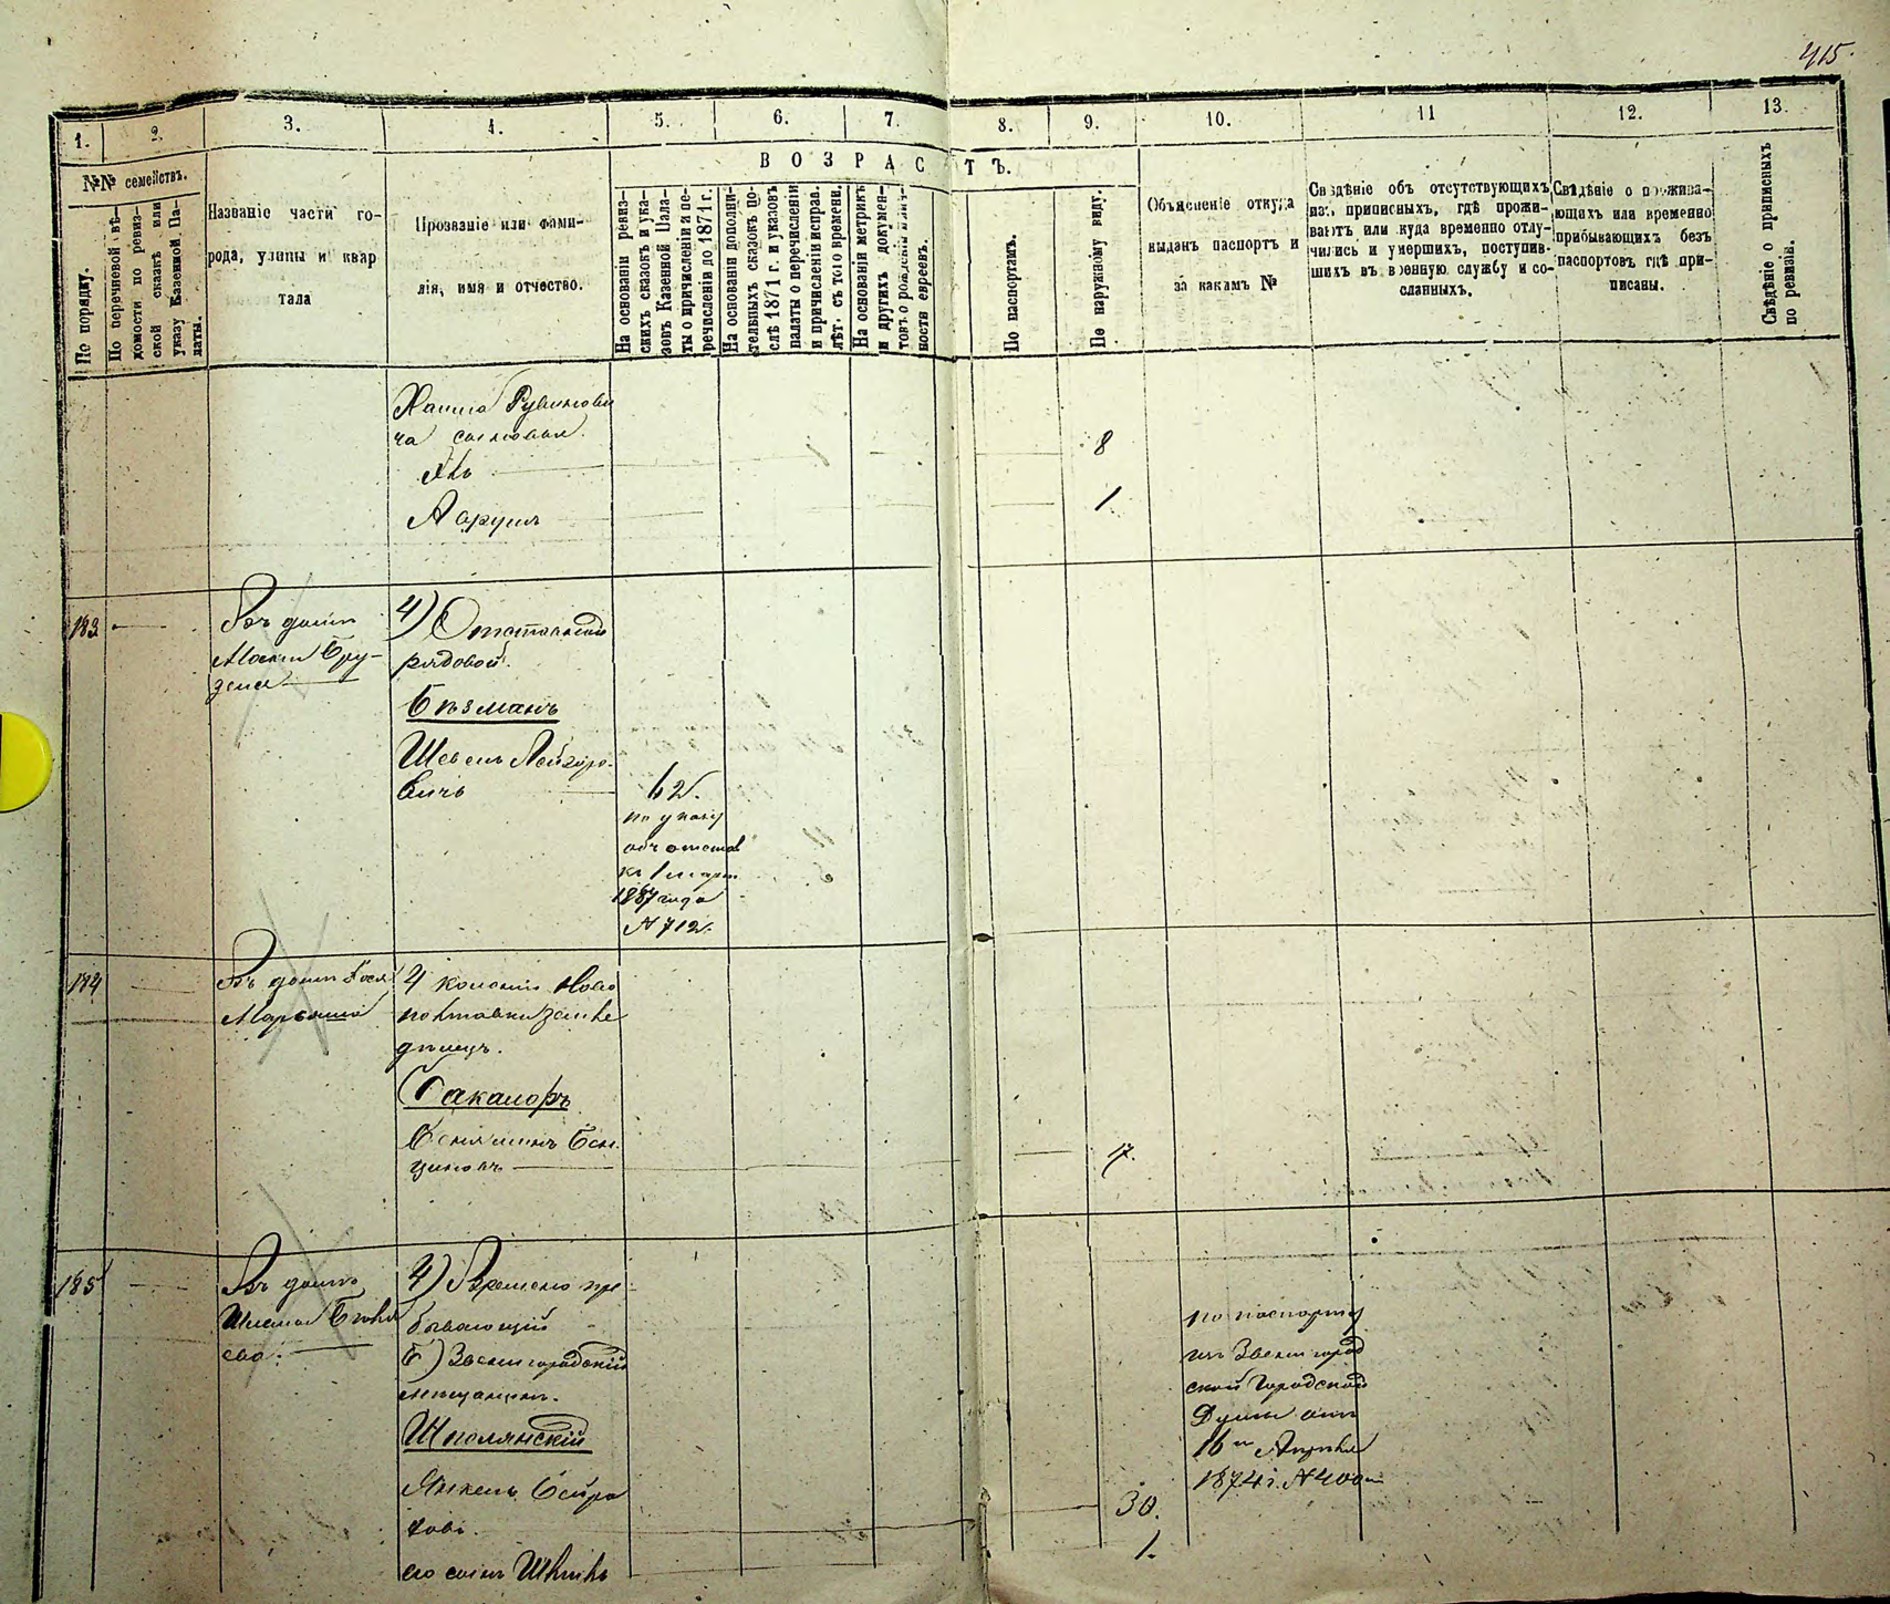 415.
1.
2.
3.
4.
5.
6.
7.
8.
9.
10.
11
12.
13.
ВОЗРАСТЪ.
№№ семействъ.
По порядку.
По перечневой вѣ-
домости по ревиз-
ской сказкѣ или
указу Казенной Па-
латы.
Названіе части го-
рода, улицы и квар
тала
Прозваніе или фами-
лія, имя и отчество.
На основаніи ревиз-
скихъ сказокъ и ука-
зовъ Казенной Пала-
ты о причисленіи и пе-
речисленіи до 1871 г.
На основаніи дополни-
тельныхъ сказокъ по-
слѣ 1871 г. и указовъ
палаты о перечисленіи
и причисленіи исправ.
лѣт. съ того времени.
На основаніи метрикъ
и другихъ докумен-
товъ о рожденіи личн-
ности евреевъ.
По паспортамъ.
По наружному виду.
Объясненіе откуда
выданъ паспортъ и
за какимъ №
Свѣдѣніе объ отсутствующихъ
изъ приписныхъ, гдѣ прожи-
ваютъ или куда временно отлу-
чились и умершихъ, поступив-
шихъ въ военную службу и со-
сланныхъ.
Свѣдѣніе о прожива-
ющихъ или временно
прибывающихъ безъ
паспортовъ гдѣ при-
писаны.
Свѣдѣніе о приписныхъ
по ревизіи.
Рувинови
ча сыновья
8
Аарунъ
1.
183
Въ домѣ
Мошки Бру-
зеля
4) Отставной
рядовой.
Бѣзманъ
Шевель Лейзоро-
вичъ
62.
по указу
объ отстав
къ 1 март
1867 года
№ 712.
184
Въ домѣ
4 колоніи Ново
полтавки земле
дѣлецъ.
Бакалоръ
Беніяминъ Бен-
ціоновъ
17.
185
Въ домѣ
4) Временно пре
бывающій
Б) Звенигородскій
мѣщанинъ.
Шполянскій
Янкель Беира
ковъ.
30.
по паспорту
изъ Звенигород
ской Городской
Думы отъ
16 го Апрѣля
1874 г. № 400
его сынъ
1.